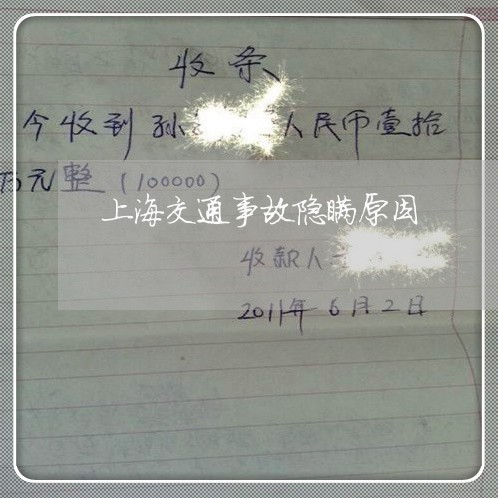 收条
今收到孙 人民币壹拾
万元整(100000)
上海交通事故隐瞒原因
收款人
2011年6月2日